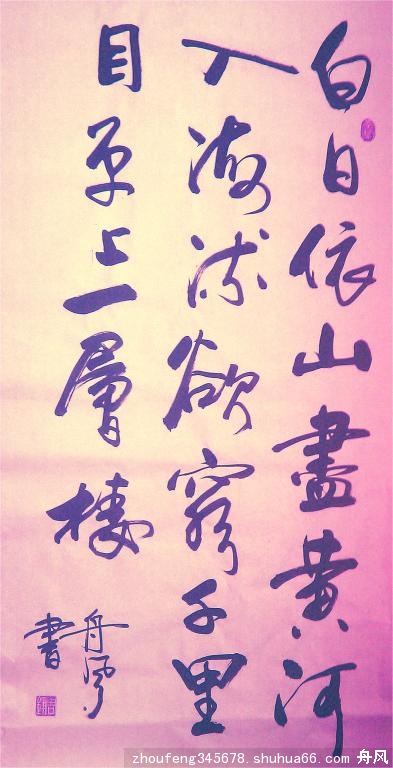 白日依山盡黄河
入海流欲窮千里
目更上一層樓
舟風
書
zhoufeng345678.shuhua66.com 舟风